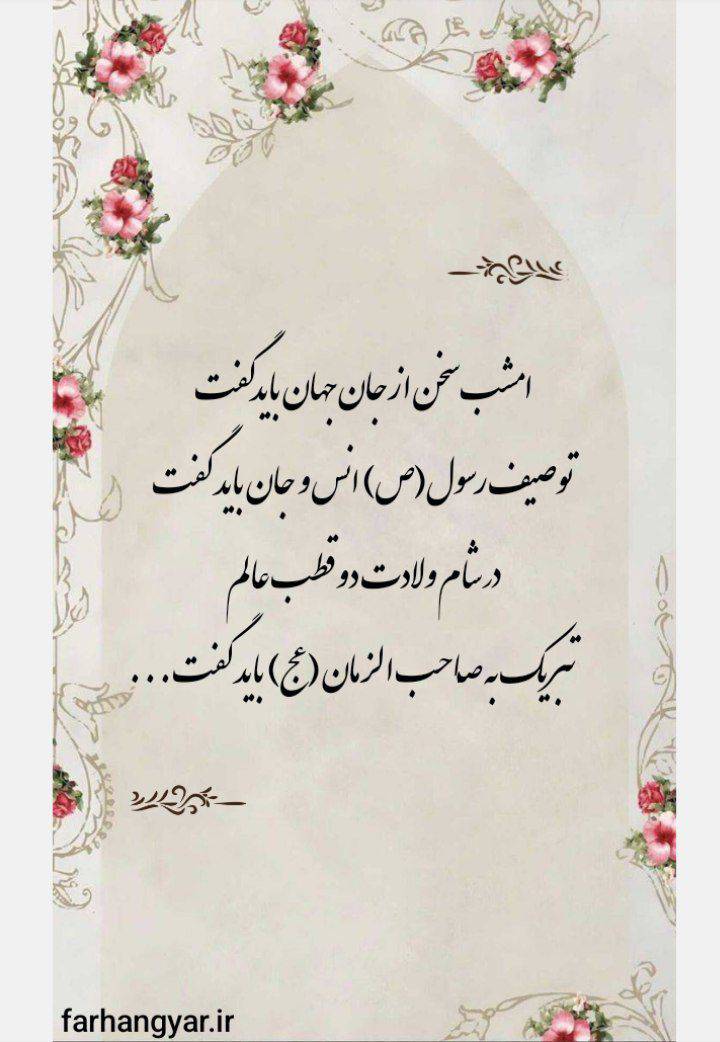 امشب سخن از جان جهان باید گفت
توصیف رسول (ص) انس و جان باید گفت
در شام ولادت دو قطب عالم
تبریک به صاحب الزمان (عج) باید گفت...
farhangyar.ir